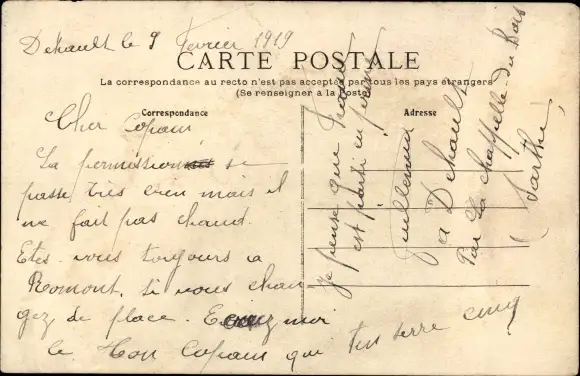 Dehault le 9 Fevrier 1919
CARTE POSTALE
La correspondance au recto n'est pas acceptée par tous les pays étrangers
(Se renseigner à la poste)
Correspondance
Adresse
Cher Copain
La permission se
passe tres bien mais il
ne fait pas chaud.
Etes-vous toujours a
Romont, Si vous chan-
gez de place. Ecrivez moi
le Mon Copain que ten serre cinq
Je pense que
est parti en perme
Guillemin
a Dehault
Par La Chappelle-du Bois
(Sarthe)